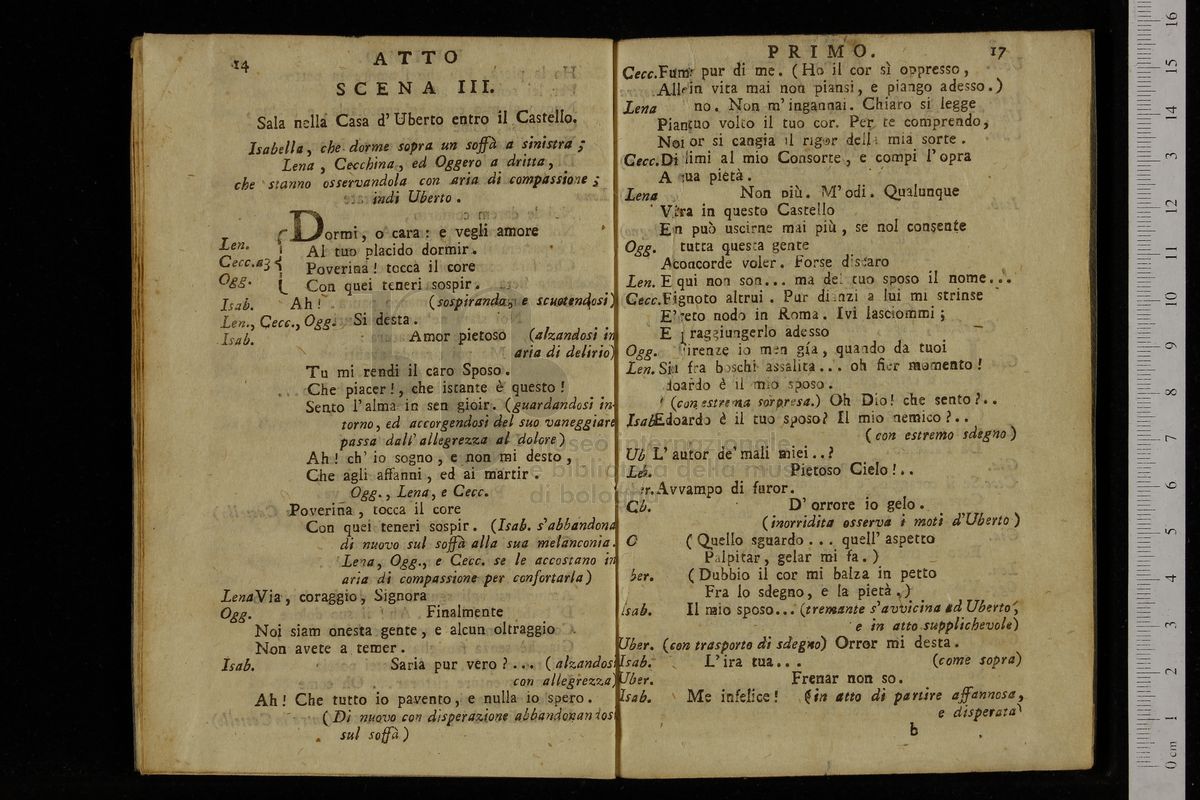 14
ATTO
SCENA III.
Sala nella Casa d'Uberto entro il Castello.
Isabella, che dorme sopra un soffà a sinistra;
Lena, Cecchina, ed Oggero a dritta,
che stanno osservandola con aria di compassione;
indi Uberto.
Dormi, o cara: e vegli amore
Len.
Al tuo placido dormir.
Cecc. a3
Poverina! tocca il core
Ogg.
Con quei teneri sospir.
Isab. Ah! (sospirando, e scuotendosi)
Len., Cecc., Ogg. Si desta.
Isab. Amor pietoso (alzandosi in
aria di delirio)
Tu mi rendi il caro Sposo.
Che piacer!, che istante è questo!
Sento l'alma in sen gioir. (guardandosi in-
torno, ed accorgendosi del suo vaneggiare
passa dall'allegrezza al dolore)
Ah! ch'io sogno, e non mi desto,
Che agli affanni, ed ai martir.
Ogg., Lena, e Cecc.
Poverina, tocca il core
Con quei teneri sospir. (Isab. s'abbandona
di nuovo sul soffà alla sua melanconia.
Lena, Ogg., e Cecc. se le accostano in
aria di compassione per confortarla)
Lena Via, coraggio, Signora
Ogg. Finalmente
Noi siam onesta gente, e alcun oltraggio
Non avete a temer.
Isab. Saria pur vero?... (alzandosi
con allegrezza)
Ah! Che tutto io pavento, e nulla io spero.
(Di nuovo con disperazione abbandonandosi
sul soffà)
PRIMO. 17
Cecc. pur di me. (Ho il cor sì oppresso,
in vita mai non piansi, e piango adesso.)
Lena no. Non m'ingannai. Chiaro si legge
volto il tuo cor. Per te comprendo,
or si cangia il rigor della mia sorte.
Cecc. Di al mio Consorte, e compi l'opra
A tua pietà.
Lena Non più. M'odi. Qualunque
in questo Castello
può uscirne mai più, se nol consente
Ogg. tutta questa gente
concorde voler. Forse
Len. E qui non son... ma del tuo sposo il nome...
Cecc. ignoto altrui. Pur dianzi a lui mi strinse
nodo in Roma. Ivi lasciommi;
E raggiungerlo adesso
Ogg. Firenze io men gía, quando da tuoi
Len. fra boschi assalita... oh fier momento!
doardo è il mio sposo.
(con estrema sorpresa.) Oh Dio! che sento?..
Isab. Edoardo è il tuo sposo? Il mio nemico?..
(con estremo sdegno)
Ub L'autor de' mali miei..?
Le. Pietoso Cielo!..
er. Avvampo di furor.
D'orrore io gelo.
(inorridita osserva i moti d'Uberto)
(Quello sguardo... quell'aspetto
Palpitar, gelar mi fa.)
ber. (Dubbio il cor mi balza in petto
Fra lo sdegno, e la pietà.)
Isab. Il mio sposo... (tremante s'avvicina ad Uberto,
e in atto supplichevole)
Uber. (con trasporto di sdegno) Orror mi desta.
Isab. L'ira tua... (come sopra)
Uber. Frenar non so.
Isab. Me infelice! (in atto di partire affannosa,
e disperata)
b
museo internazionale
e biblioteca della musica
di bologna
0 cm 1 2 3 4 5 6 7 8 9 10 11 12 13 14 15 16